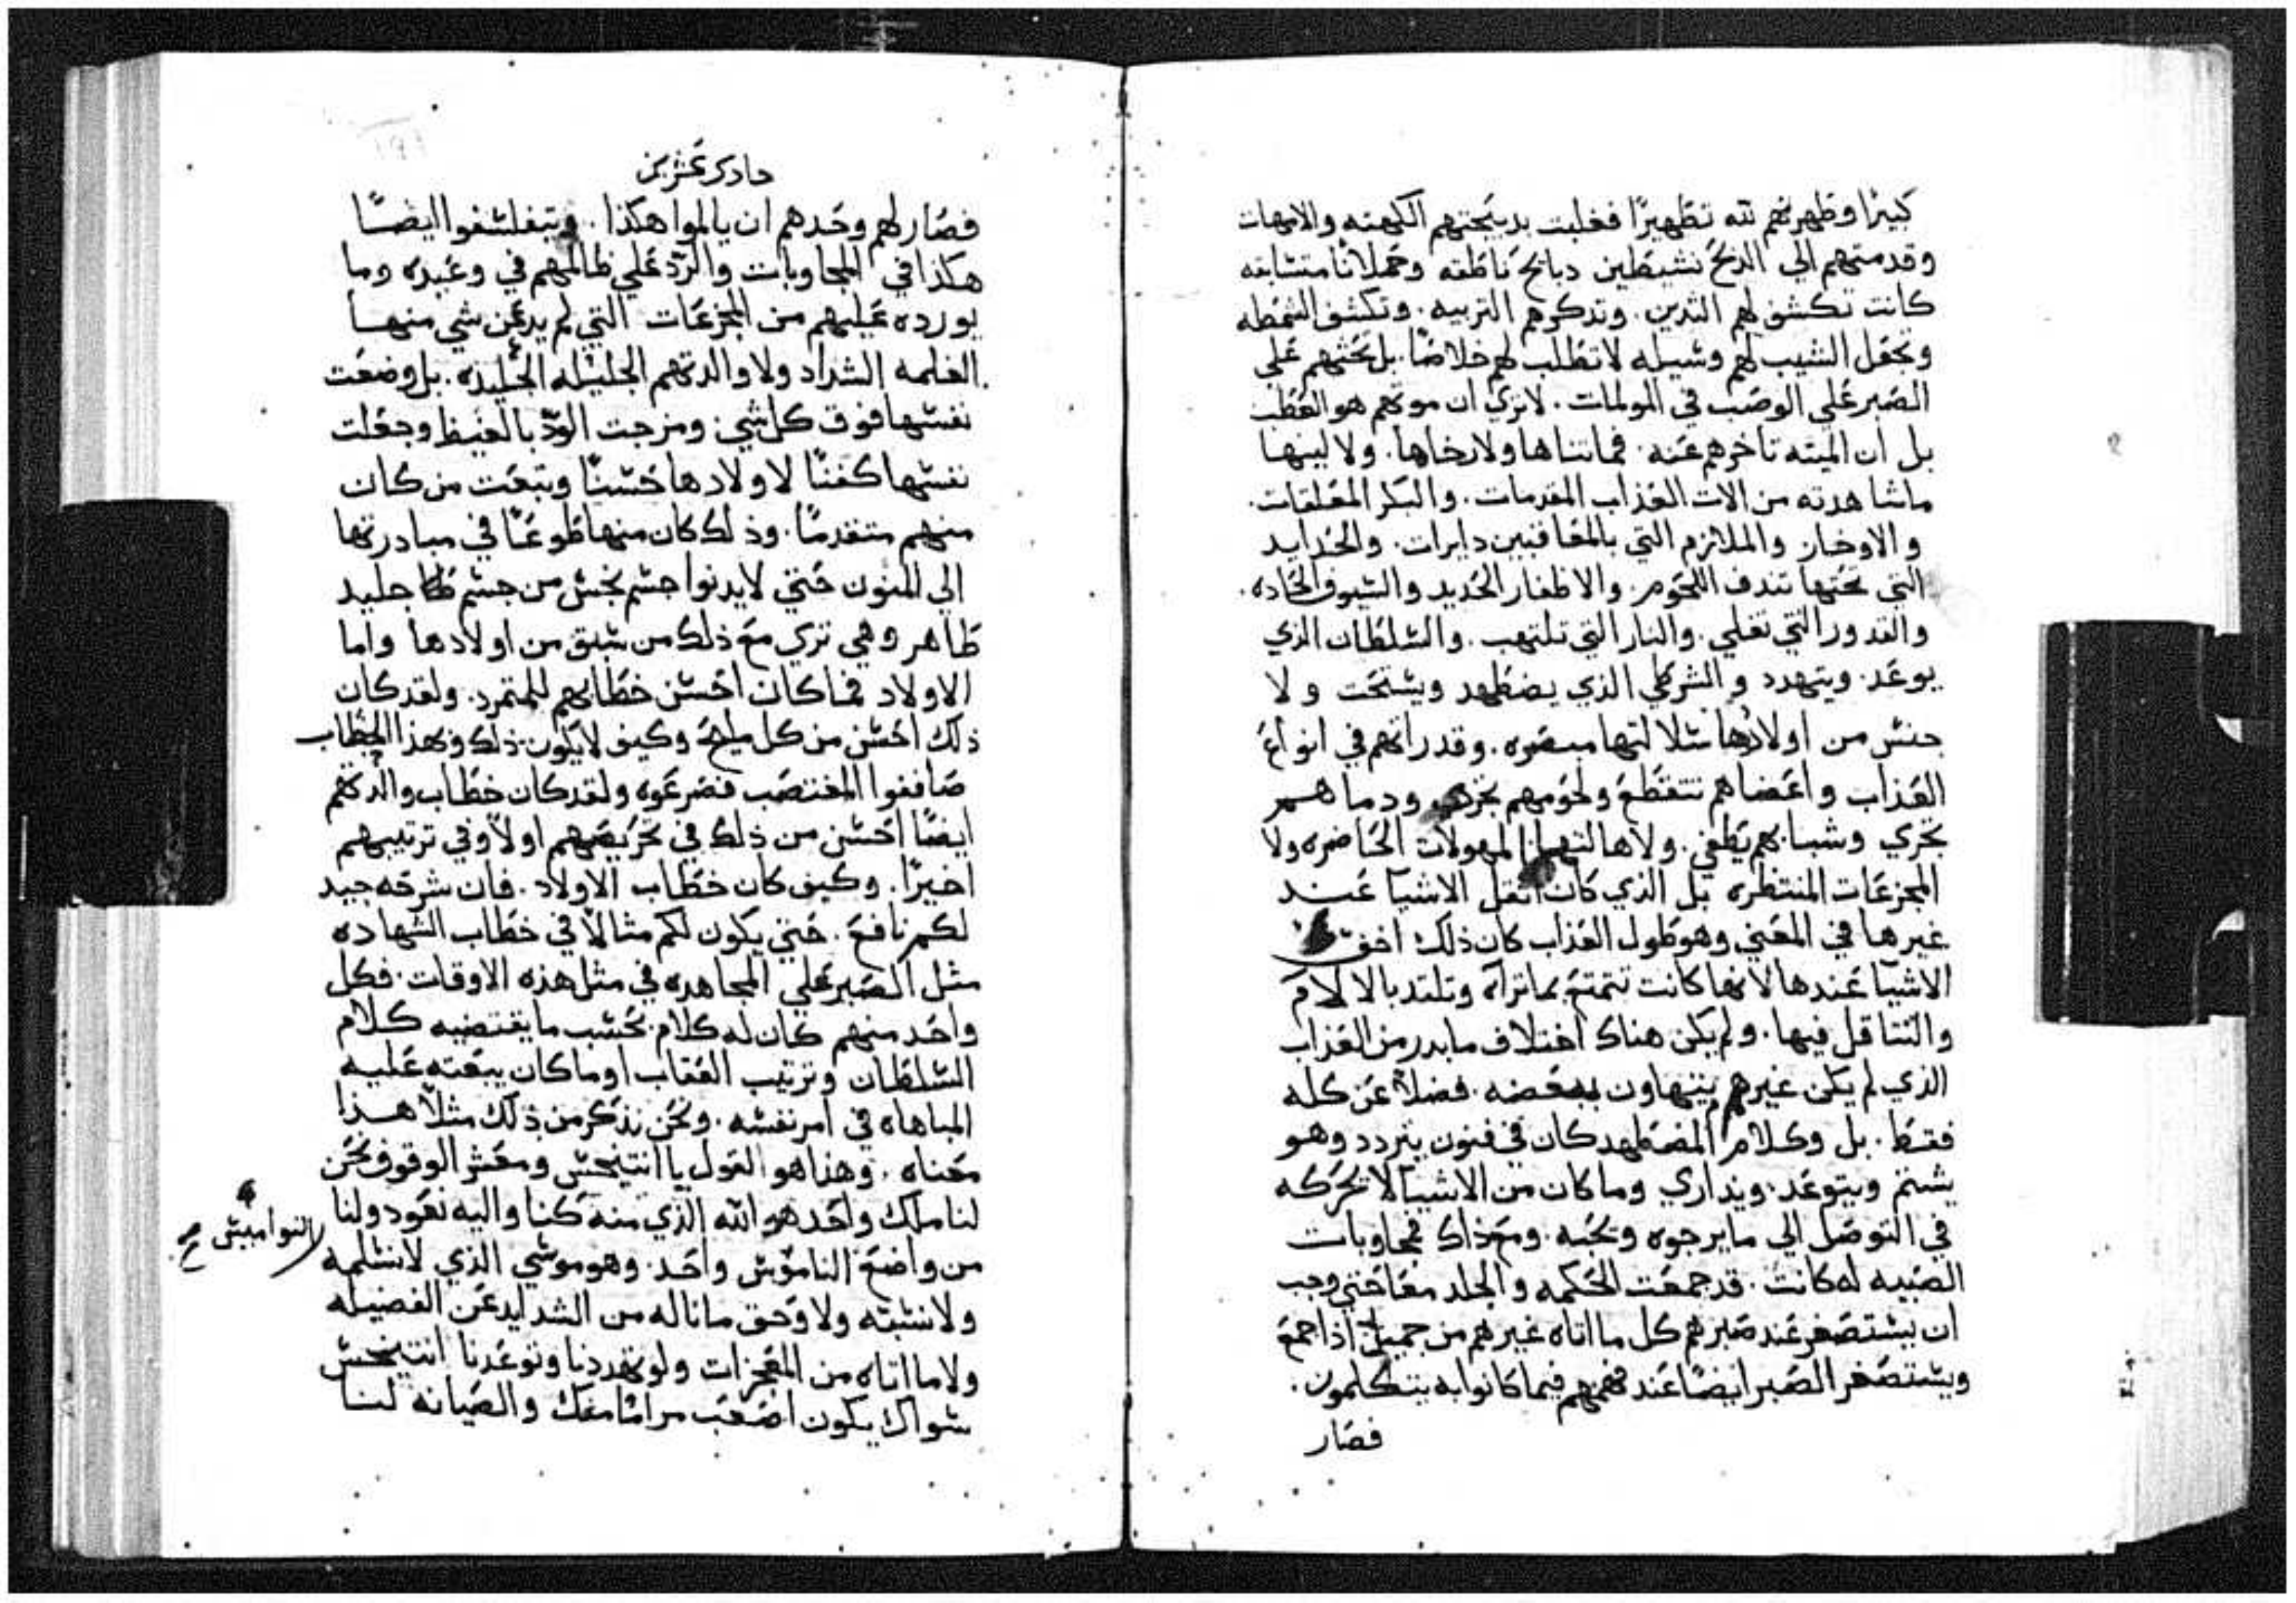 كبيرًا وطهرتهم لله تطهيرًا فغلبت بدبيحتهم الكهنه والامهات
وقدمتهم الي الدبح نشيطين دبايح ناطقه وحملانًا متشابقه
كانت تكشف لهم الثديين. وتدكرهم التربيه. وتكشف الشمطه
وتجعل الشيب لهم وسيله لا تطلب لهم خلاصًا. بل تحثهم علي
الصبر علي الوصب في المولمات. لا تري ان موتهم هو العطب
بل ان الميته تاخرهم عنه. فما تناها ولا رخاها. ولا لينها
ما شاهدته من الات العذاب المقدمات. والبكر المعلقات.
والاوخاز والملازم التي بالمعاقبين دايرات. والحدايد
التي تحتها تندف اللحوم. والاظفار الحديد والسيوف الحاده.
والقدور التي تغلي. والنار التي تلتهب. والسلطان الذي
يوعد. ويتهدد والشرطي الذي يضطهد ويستحت ولا
جنس من اولادها سلالتها مبصره. وقدراتهم في انواع
العذاب واعضاهم تتقطع ولحومهم تخرق ودماهم
تجري وشبابهم يطفي. ولا هالتها المهولات الحاضره ولا
المجزعات المنتظره بل الذي كان اثقل الاشيا عند
غيرها في المعني وهو طول العذاب كان ذلك اخف
الاشيا عندها لانها كانت تتمتع بما تراه وتلتد بالالام
والتثاقل فيها. ولم يكن هناك اختلاف ما بدر من العذاب
الذي لم يكن غيرهم يتهاون ببعضه. فضلًا عن كله
فقط. بل وكلام المضطهد كان في فنون يتردد وهو
يشتم ويتوعد. ويداري وما كان من الاشيا لا تحركه
في التوصل الي ما يرجوه ويحبه. ومع ذاك فمجاوبات
الصبيه له كانت. قد جمعت الحكمه والجلد معًا حتي وجب
ان يستصغر عند صبرهم كل ما اتاه غيرهم من جميل اذا جمع
ويستصغر الصبر ايضًا عند فهمهم فيما كانوا به يتكلمون.
فصار
حادي عشرين
فصار لهم وحدهم ان يالموا هكذا. ويتفلسفوا ايضًا
هكذا في المجاوبات والرد علي ظالمهم في وعيده وما
يورده عليهم من المجزعات التي لم يدعن شي منها
الغلمه الشداد ولا والدتهم الجليله الجليده. بل وضعت
نفسها فوق كل شي ومزجت الود بالغيظ وجعلت
نفسها كفنًا لاولادها حسنًا وتبعت من كان
منهم متقدمًا. وذلك كان منها طوعًا في مبادرتها
الي المنون حتي لا يدنوا جسم نجس من جسم طاهر جليد
ظاهر وهي تري مع ذلك من سبق من اولادها واما
الاولاد فما كان احسن خطابهم للمتمرد. ولقد كان
ذلك احسن من كل مليح وكيف لا يكون ذلك وبهذا الخطاب
صاففوا المغتصب فصرعوه ولقد كان خطاب والدتهم
ايضًا احسن من ذلك في تحريضهم اولًا وفي ترتيبهم
اخيرًا. وكيف كان خطاب الاولاد. فان شرحه جيد
لكم نافع. حتي يكون لكم مثالًا في خطاب الشهاده
مثل الصبر علي المجاهده في مثل هذه الاوقات. فكل
واحد منهم كان له كلام بحسب ما يقتضيه كلام
السلطان وترتيب العقاب او ما كان يبعته عليه
المباهاه في امر نفسه. ونحن نذكر من ذلك مثلًا هذا
معناه. وهذا هو القول يا انتيخس ومعشر الوقوف نحن
لنا ملك واحد هو الله الذي منه كنا واليه نعود ولنا
من واضع الناموس واحد. وهو موسي الذي لا نسلمه
النواميس ح
ولا نسبته ولا وحق ما ناله من الشدايد عن الفضيله
ولا ما اتاه من المعجزات ولو تهددنا وتوعدنا انتيخس
سواك يكون اصعب مرامًا منك والصيانه لنا